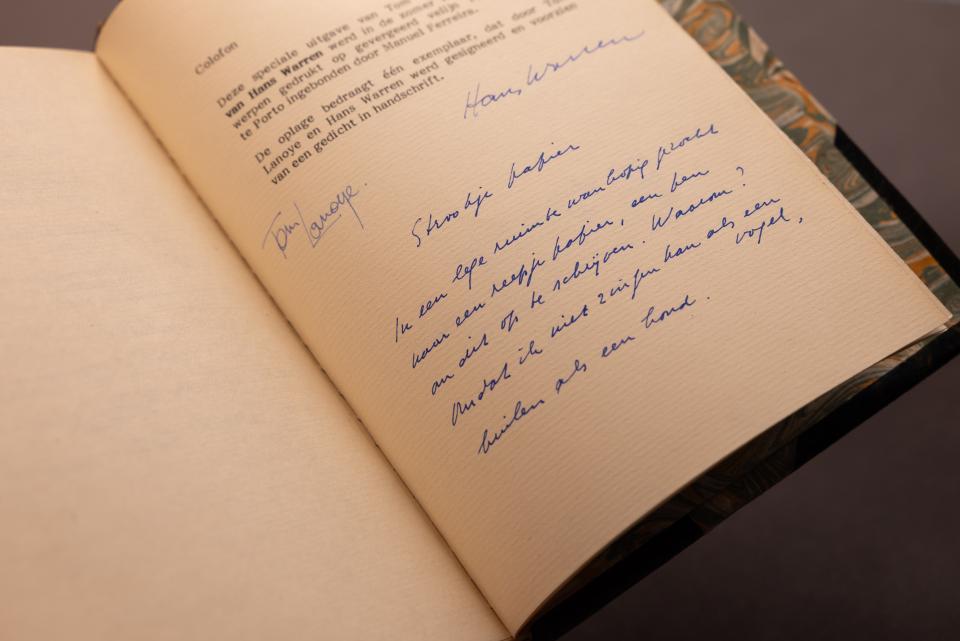 Colofon
Deze speciale uitgave van Tom
van Hans Warren werd in de zomer
werpen gedrukt op gevergeerd velijn
te Porto ingebonden door Manuel Ferreira.
De oplage bedraagt één exemplaar, dat door Tom
Lanoye en Hans Warren werd gesigneerd en voorzien
van een gedicht in handschrift.
Hans Warren
Tom Lanoye.
Strookje papier
In een lege ruimte wanhopig gezocht
naar een reepje papier, een pen
om dit op te schrijven. Waarom?
Omdat ik niet zingen kan als een
vogel,
huilen als een hond.